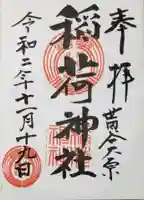 奉拝
稲荷神社
令和二年十一月十九日